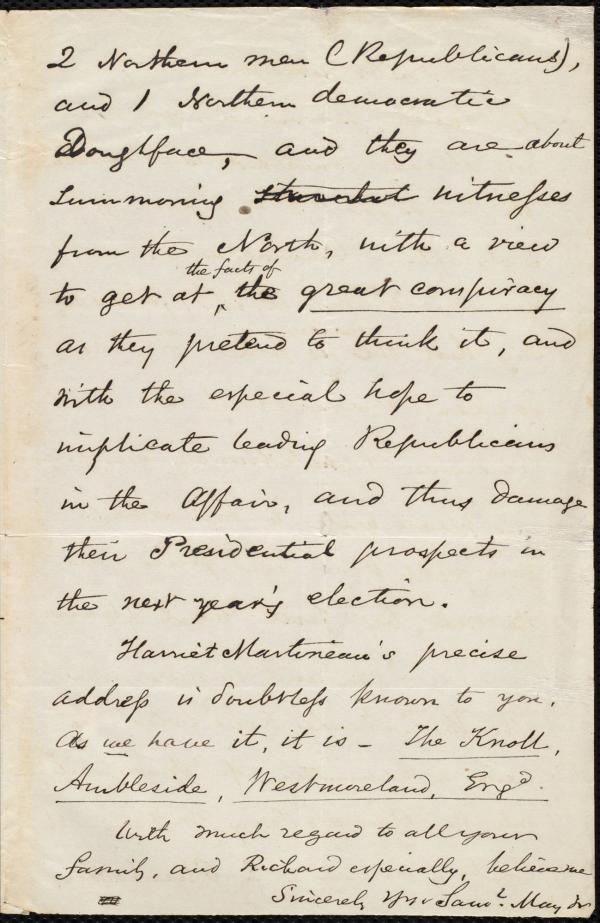 2 Northern men (Republicans),
and 1 Northern democratic
Doughface, and they are about
summoning witnesses
from the North, with a view
the facts of
to get at the great conspiracy
as they pretend to think it, and
with the especial hope to
implicate leading Republicans
in the Affair, and thus damage
their Presidential prospects in
the next year's election.
Harriet Martineau's precise
address is doubtless known to you.
As we have it, it is - The Knoll,
Ambleside, Westmoreland, Engd.
With much regard to all your
family, and Richard especially, believe me
Sincerely Yrs Saml. May Jr